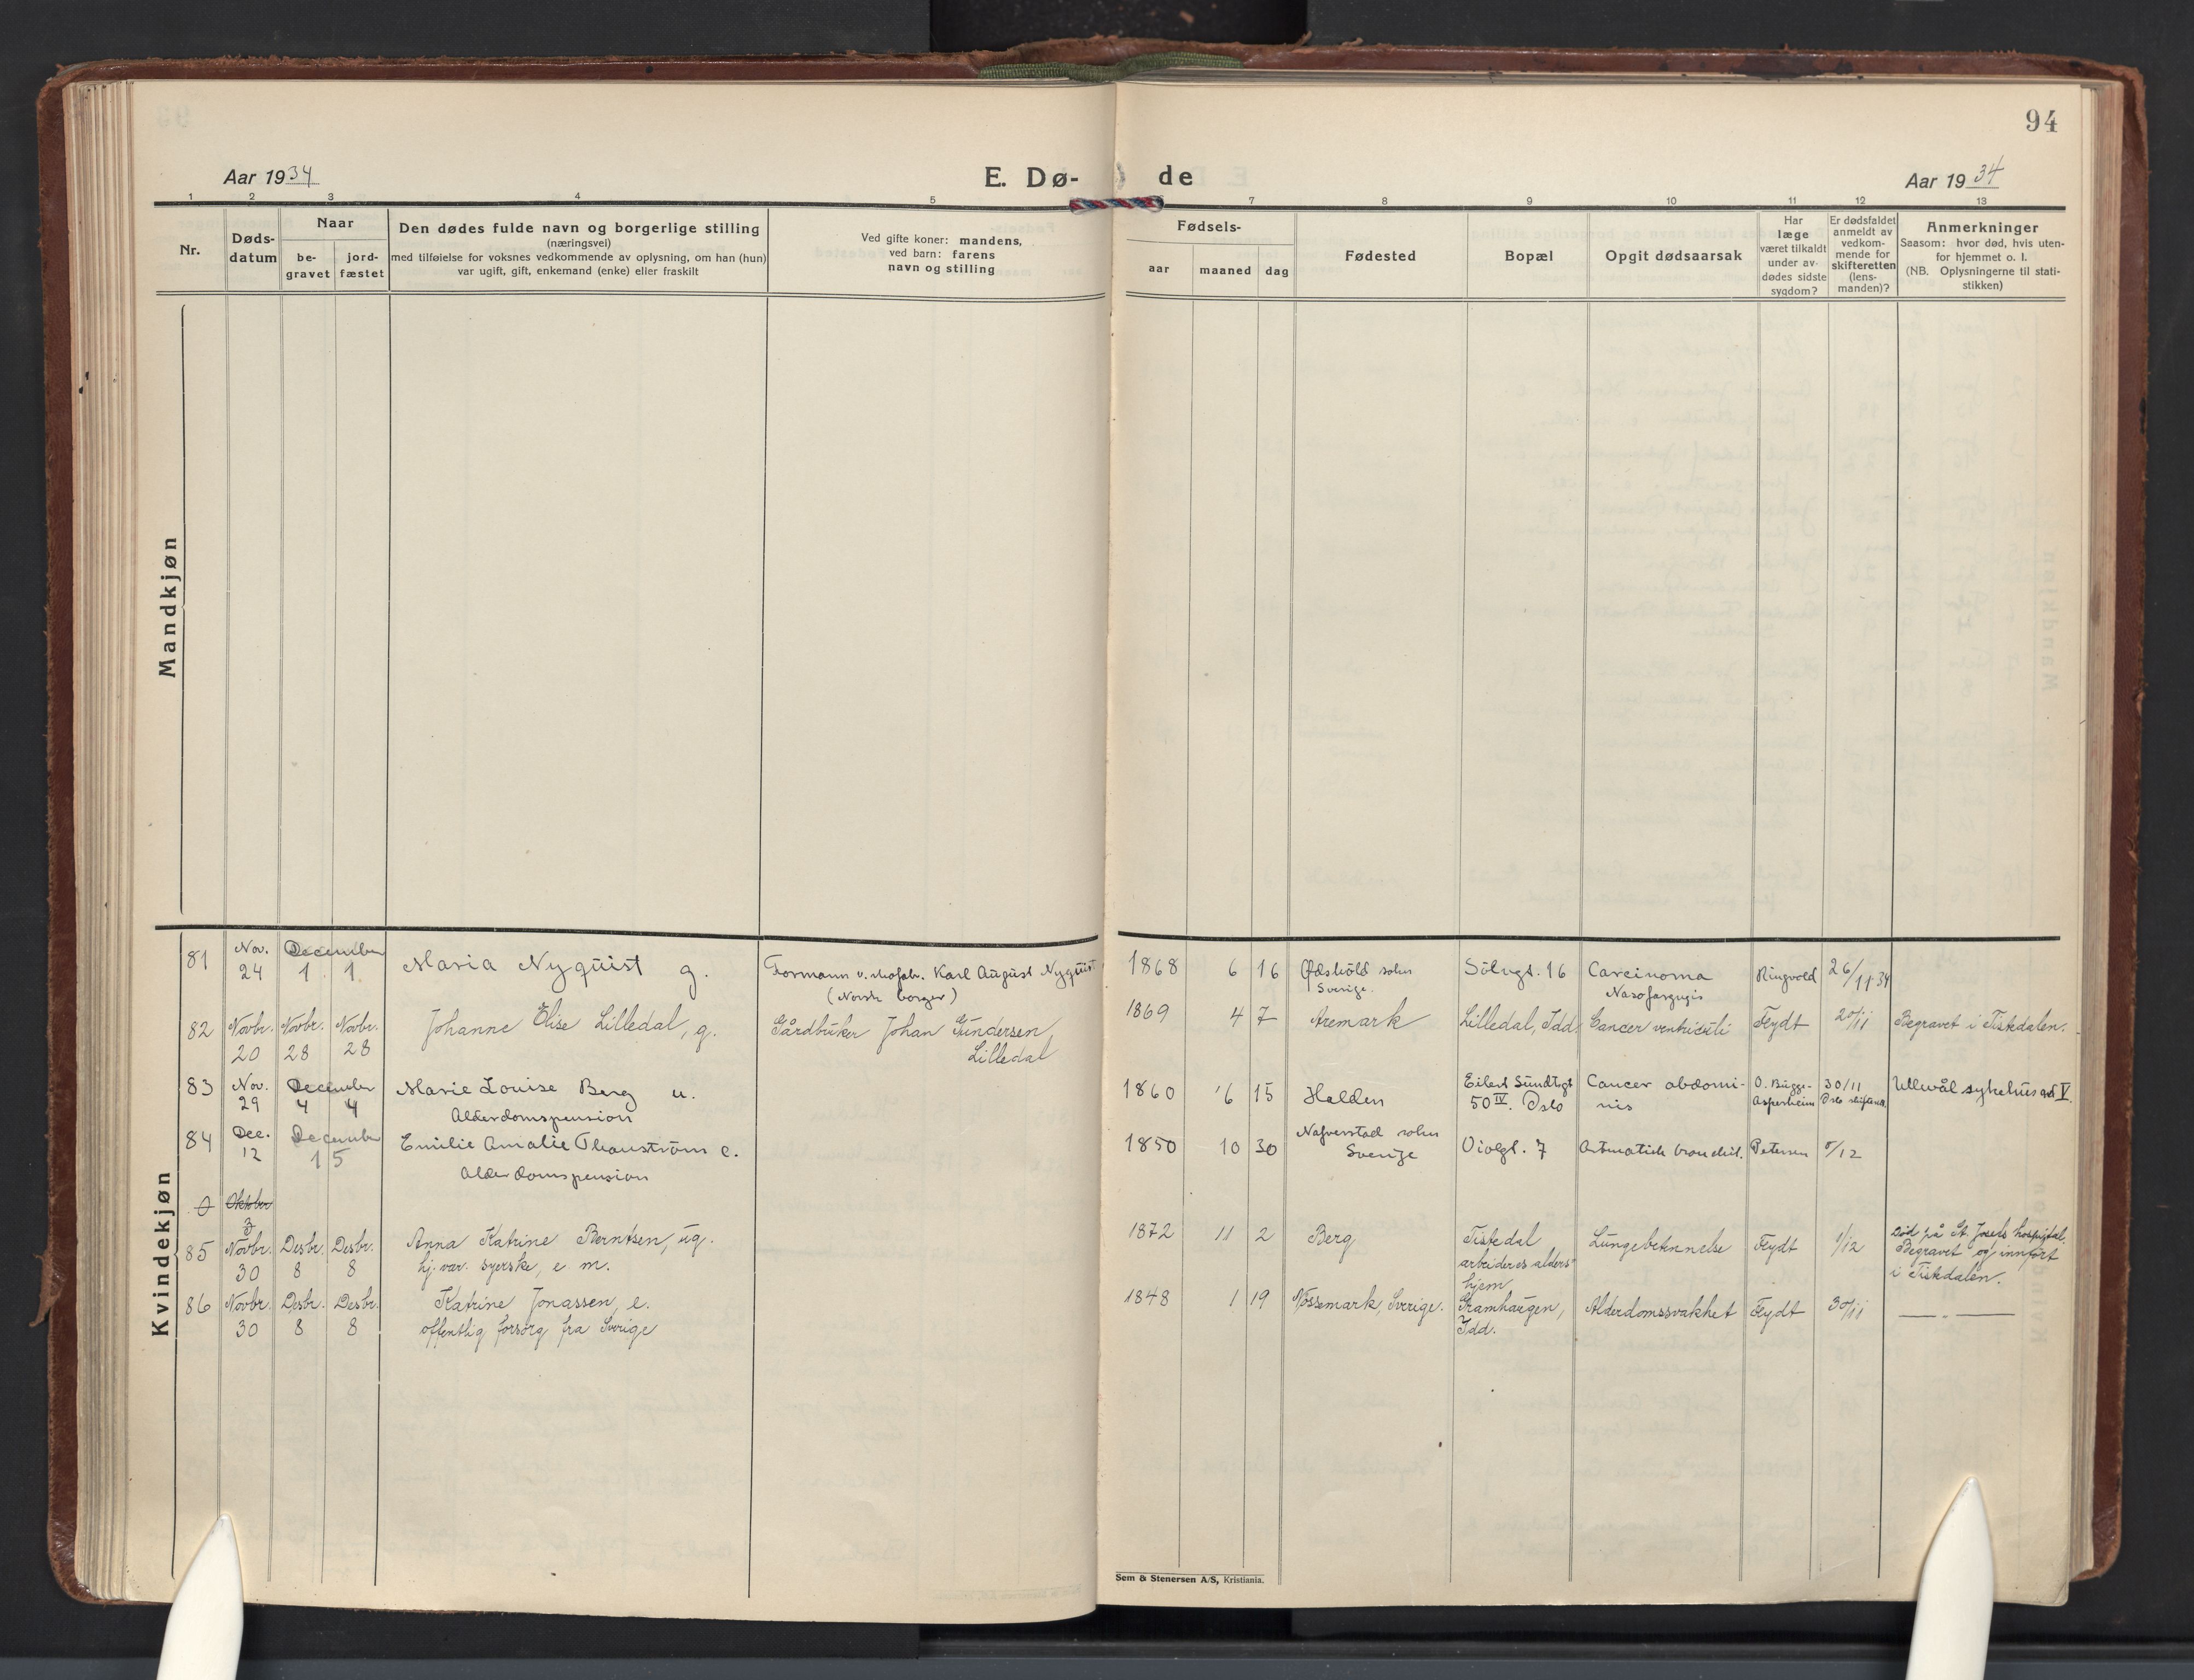 94
Aar 1934
E. Dø-
de
Aar 1934
1 2 3 4 5 7 8 9 10 11 12 13
Nr.
Døds-
datum
Naar
be-
gravet
jord-
fæstet
Den dødes fulde navn og borgerlige stilling
(næringsvei)
med tilføielse for voksnes vedkommende av oplysning, om han (hun)
var ugift, gift, enkemand (enke) eller fraskilt
Ved gifte koner: mandens,
ved barn: farens
navn og stilling
Fødsels-
aar maaned dag
Fødested
Bopæl
Opgit dødsaarsak
Har
læge
været tilkaldt
under av-
dødes sidste
sygdom?
Er dødsfaldet
anmeldt av
vedkom-
mende for
skifteretten
(lens-
manden)?
Anmerkninger
Saasom: hvor død, hvis uten-
for hjemmet o. l.
(NB. Oplysningerne til stati-
stikken)
Mandkjøn
Kvindekjøn
81 Nov. December Maria Nyquist g. Formann v. skofabr. Karl August Nyquist 1868 6 16 Ødsköld sokn Sölvgt. 16 Carcinoma Ringvold 26/11 34
24 1 1 (Norsk borger) Sverige. Nasofaryngis
82 Novbr. Novbr. Novbr. Johanne Elise Lilledal, g. Gårdbruker Johan Gundersen 1869 4 7 Aremark Lilledal, Idd Cancer ventriculi Feydt 20/11 Begravet i Tistedalen.
20 28 28 Lilledal
83 Nov. December Marie Louise Berg u. 1860 6 15 Halden Eilert Sundtsgt Cancer abdomi- O. Bugge- 30/11 Ullevål sykehus avd V.
29 4 4 Alderdomspension 50 IV. Oslo nis Asperheim Oslo skifterett
84 Dec. December Emilie Amalie Thanström e. 1850 10 30 Nafverstad sokn Violgt. 7 Astmatisk bronchit. Petersen /12
12 15 Alderdomspension Sverige
0 Oktober
3
85 Novbr. Desbr. Desbr. Anna Katrine Berntsen, ug. 1872 11 2 Berg Tistedal Lungebetennelse Feydt 1/12 Død på St. Josefs hospital.
30 8 8 hj. vær. syerske, e m. arbeideres alders- Begravet og innført
hjem i Tistedalen.
86 Novbr. Desbr. Desbr. Katrine Jonassen, e. 1848 1 19 Nössemark, Sverige. Gramhaugen, Alderdomssvakhet Feydt 30/11 — „ —
30 8 8 offentlig forsørg fra Sverige Idd.
Sem & Stenersen A/S, Kristiania.